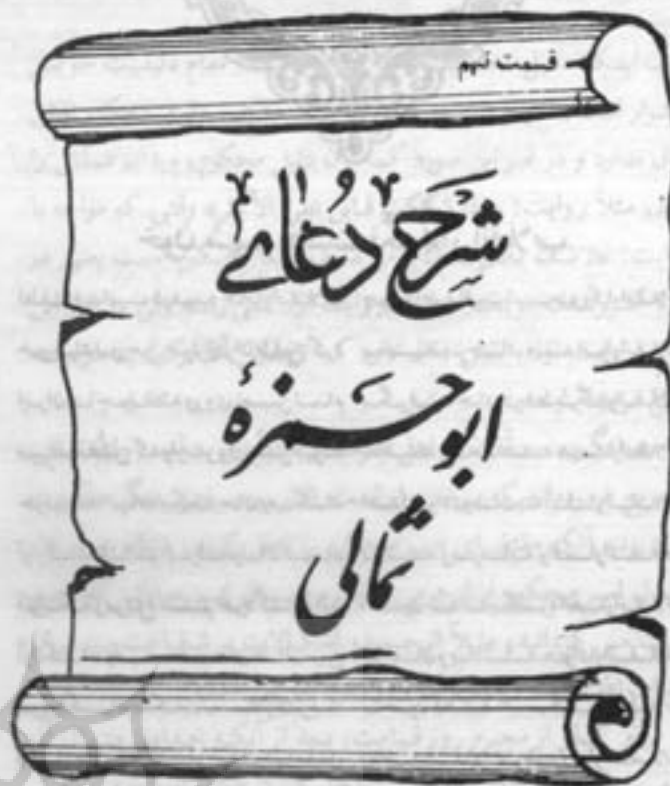 قسمت نهم
شرح دعای
ابوحمزهٔ
ثمالی